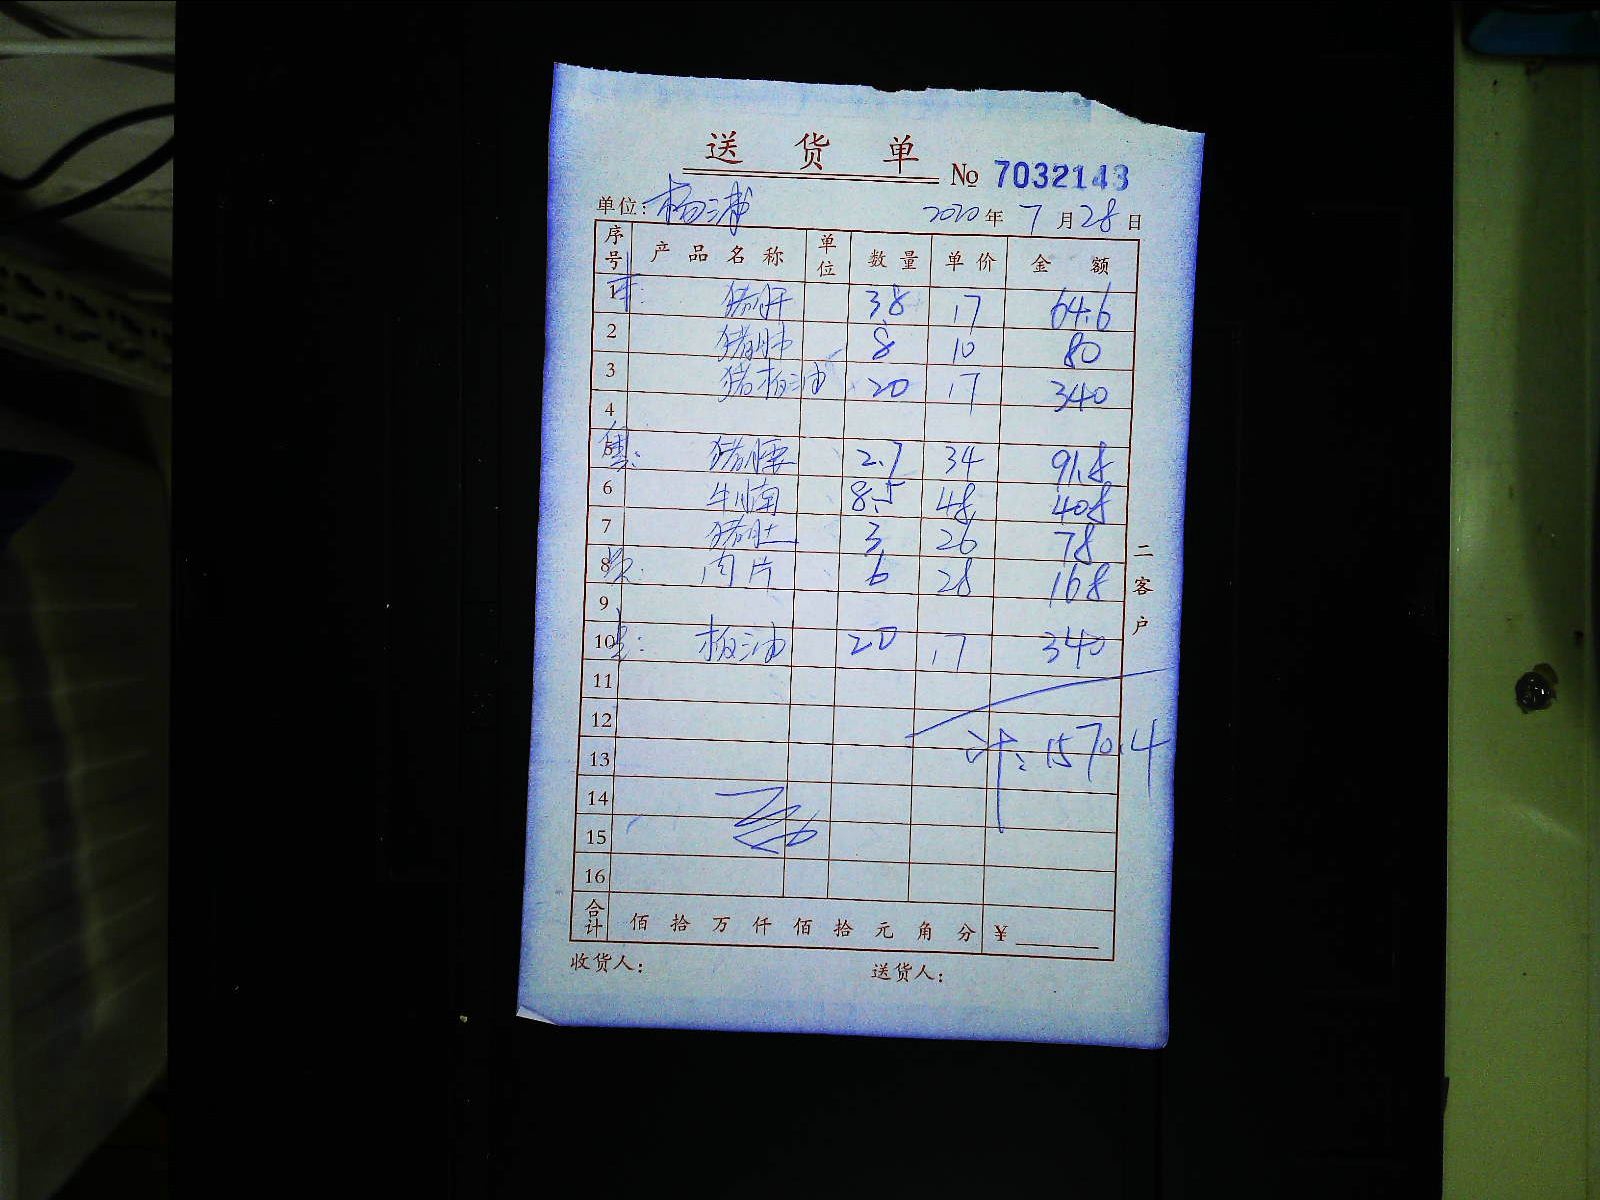 送货单 № 7032143
单位：杨浦 2020年7月28日
序号 产品名称 单位 数量 单价 金额
1 猪肝 3.8 17 64.6
2 猪肺 8 10 80
3 猪板油 20 17 340
4
5 猪腰 2.7 34 91.8
6 牛腩 8.5 48 408
7 猪肚 3 26 78
8 肉片 6 28 168
9
10 板油 20 17 340
11
12
计：1570.4
13
14
15
16
合计 佰拾万仟佰拾元角分 ¥
收货人： 送货人：
二客户